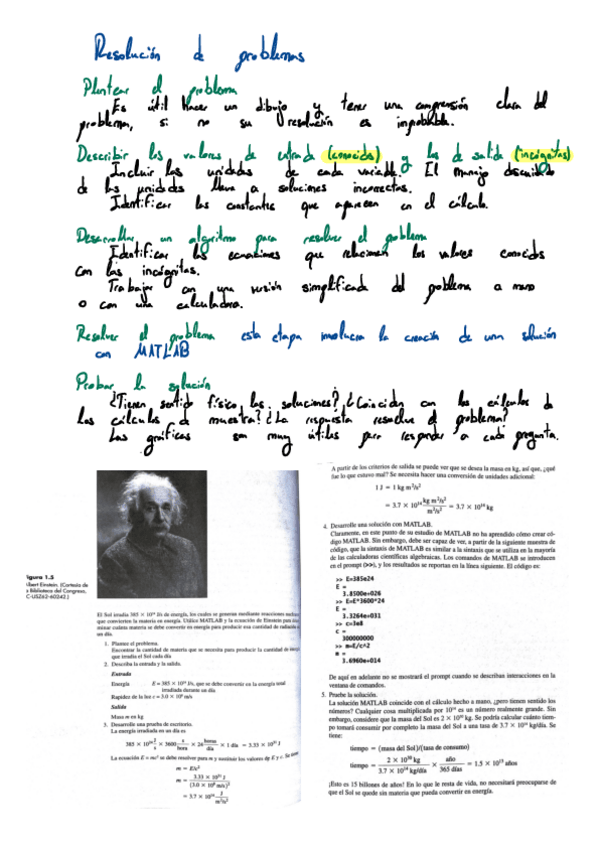 Resolución de problemas
Plantear el problema
Es útil hacer un dibujo y tener una comprensión clara del
problema, si no su resolución es improbable.
Describir los valores de entrada (conocidos) y los de salida (incógnitas)
Incluir las unidades de cada variable. El manejo descuidado
de las unidades lleva a soluciones incorrectas.
Identificar las constantes que aparecen en el cálculo.
Desarrollar un algoritmo para resolver el problema
Identificar las ecuaciones que relacionen los valores conocidos
con las incógnitas.
Trabajar con una versión simplificada del problema a mano
o con una calculadora.
Resolver el problema esta etapa involucra la creación de una solución
con MATLAB
Probar la solución
¿Tienen sentido físico las soluciones? ¿Coinciden con los cálculos de
los cálculos de muestra? ¿La respuesta resuelve el problema?
Las gráficas son muy útiles para responder a cada pregunta.
igura 1.5
lbert Einstein. (Cortesía de
a Biblioteca del Congreso,
C-USZ62-60242.)
El Sol irradia 385 × 10²⁴ J/s de energía, los cuales se generan mediante reacciones
que convierten la materia en energía. Utilice MATLAB y la ecuación de Einstein para
minar cuánta materia se debe convertir en energía para producir esa cantidad de
un día.
1. Plantee el problema.
Encontrar la cantidad de materia que se necesita para producir la cantidad de
que irradia el Sol cada día
2. Describa la entrada y la salida.
Entrada
Energía E = 385 × 10²⁴ J/s, que se debe convertir en la energía total
irradiada durante un día
Rapidez de la luz c = 3.0 × 10⁸ m/s
Salida
Masa m en kg
3. Desarrolle una prueba de escritorio.
La energía irradiada en un día es
385 × 10²⁴ J/s × 3600 s/hora × 24 horas/día × 1 día = 3.33 × 10³¹ J
La ecuación E = mc² se debe resolver para m y sustituir los valores de E y c. Se tiene
m = E/c²
m = 3.33 × 10³¹ J / (3.0 × 10⁸ m/s)²
= 3.7 × 10¹⁴ J / m²/s²
A partir de los criterios de salida se puede ver que se desea la masa en kg, así que, ¿qué
fue lo que estuvo mal? Se necesita hacer una conversión de unidades adicional:
1 J = 1 kg m²/s²
= 3.7 × 10¹⁴ kg m²/s² / m²/s² = 3.7 × 10¹⁴ kg
4. Desarrolle una solución con MATLAB.
Claramente, en este punto de su estudio de MATLAB no ha aprendido cómo crear có-
digo MATLAB. Sin embargo, debe ser capaz de ver, a partir de la siguiente muestra de
código, que la sintaxis de MATLAB es similar a la sintaxis que se utiliza en la mayoría
de las calculadoras científicas algebraicas. Los comandos de MATLAB se introducen
en el prompt (>>), y los resultados se reportan en la línea siguiente. El código es:
>> E=385e24
E =
3.8500e+026
>> E=E*3600*24
E =
3.3264e+031
>> c=3e8
c =
300000000
>> m=E/c^2
m =
3.6960e+014
De aquí en adelante no se mostrará el prompt cuando se describan interacciones en la
ventana de comandos.
5. Pruebe la solución.
La solución MATLAB coincide con el cálculo hecho a mano, ¿pero tienen sentido los
números? Cualquier cosa multiplicada por 10¹⁴ es un número realmente grande. Sin
embargo, considere que la masa del Sol es 2 × 10³⁰ kg. Se podría calcular cuánto tiem-
po tomará consumir por completo la masa del Sol a una tasa de 3.7 × 10¹⁴ kg/día. Se
tiene:
tiempo = (masa del Sol)/(tasa de consumo)
tiempo = 2 × 10³⁰ kg / 3.7 × 10¹⁴ kg/día × año / 365 días = 1.5 × 10¹³ años
¡Esto es 15 billones de años! En lo que le resta de vida, no necesitará preocuparse de
que el Sol se quede sin materia que pueda convertir en energía.